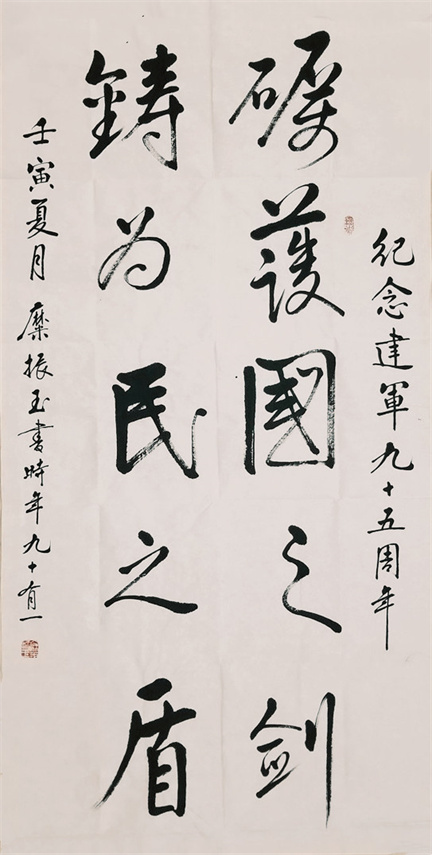 紀念建軍九十五周年
礪護國之剑
鑄为民之盾
壬寅夏月 糜振玉書時年九十有一